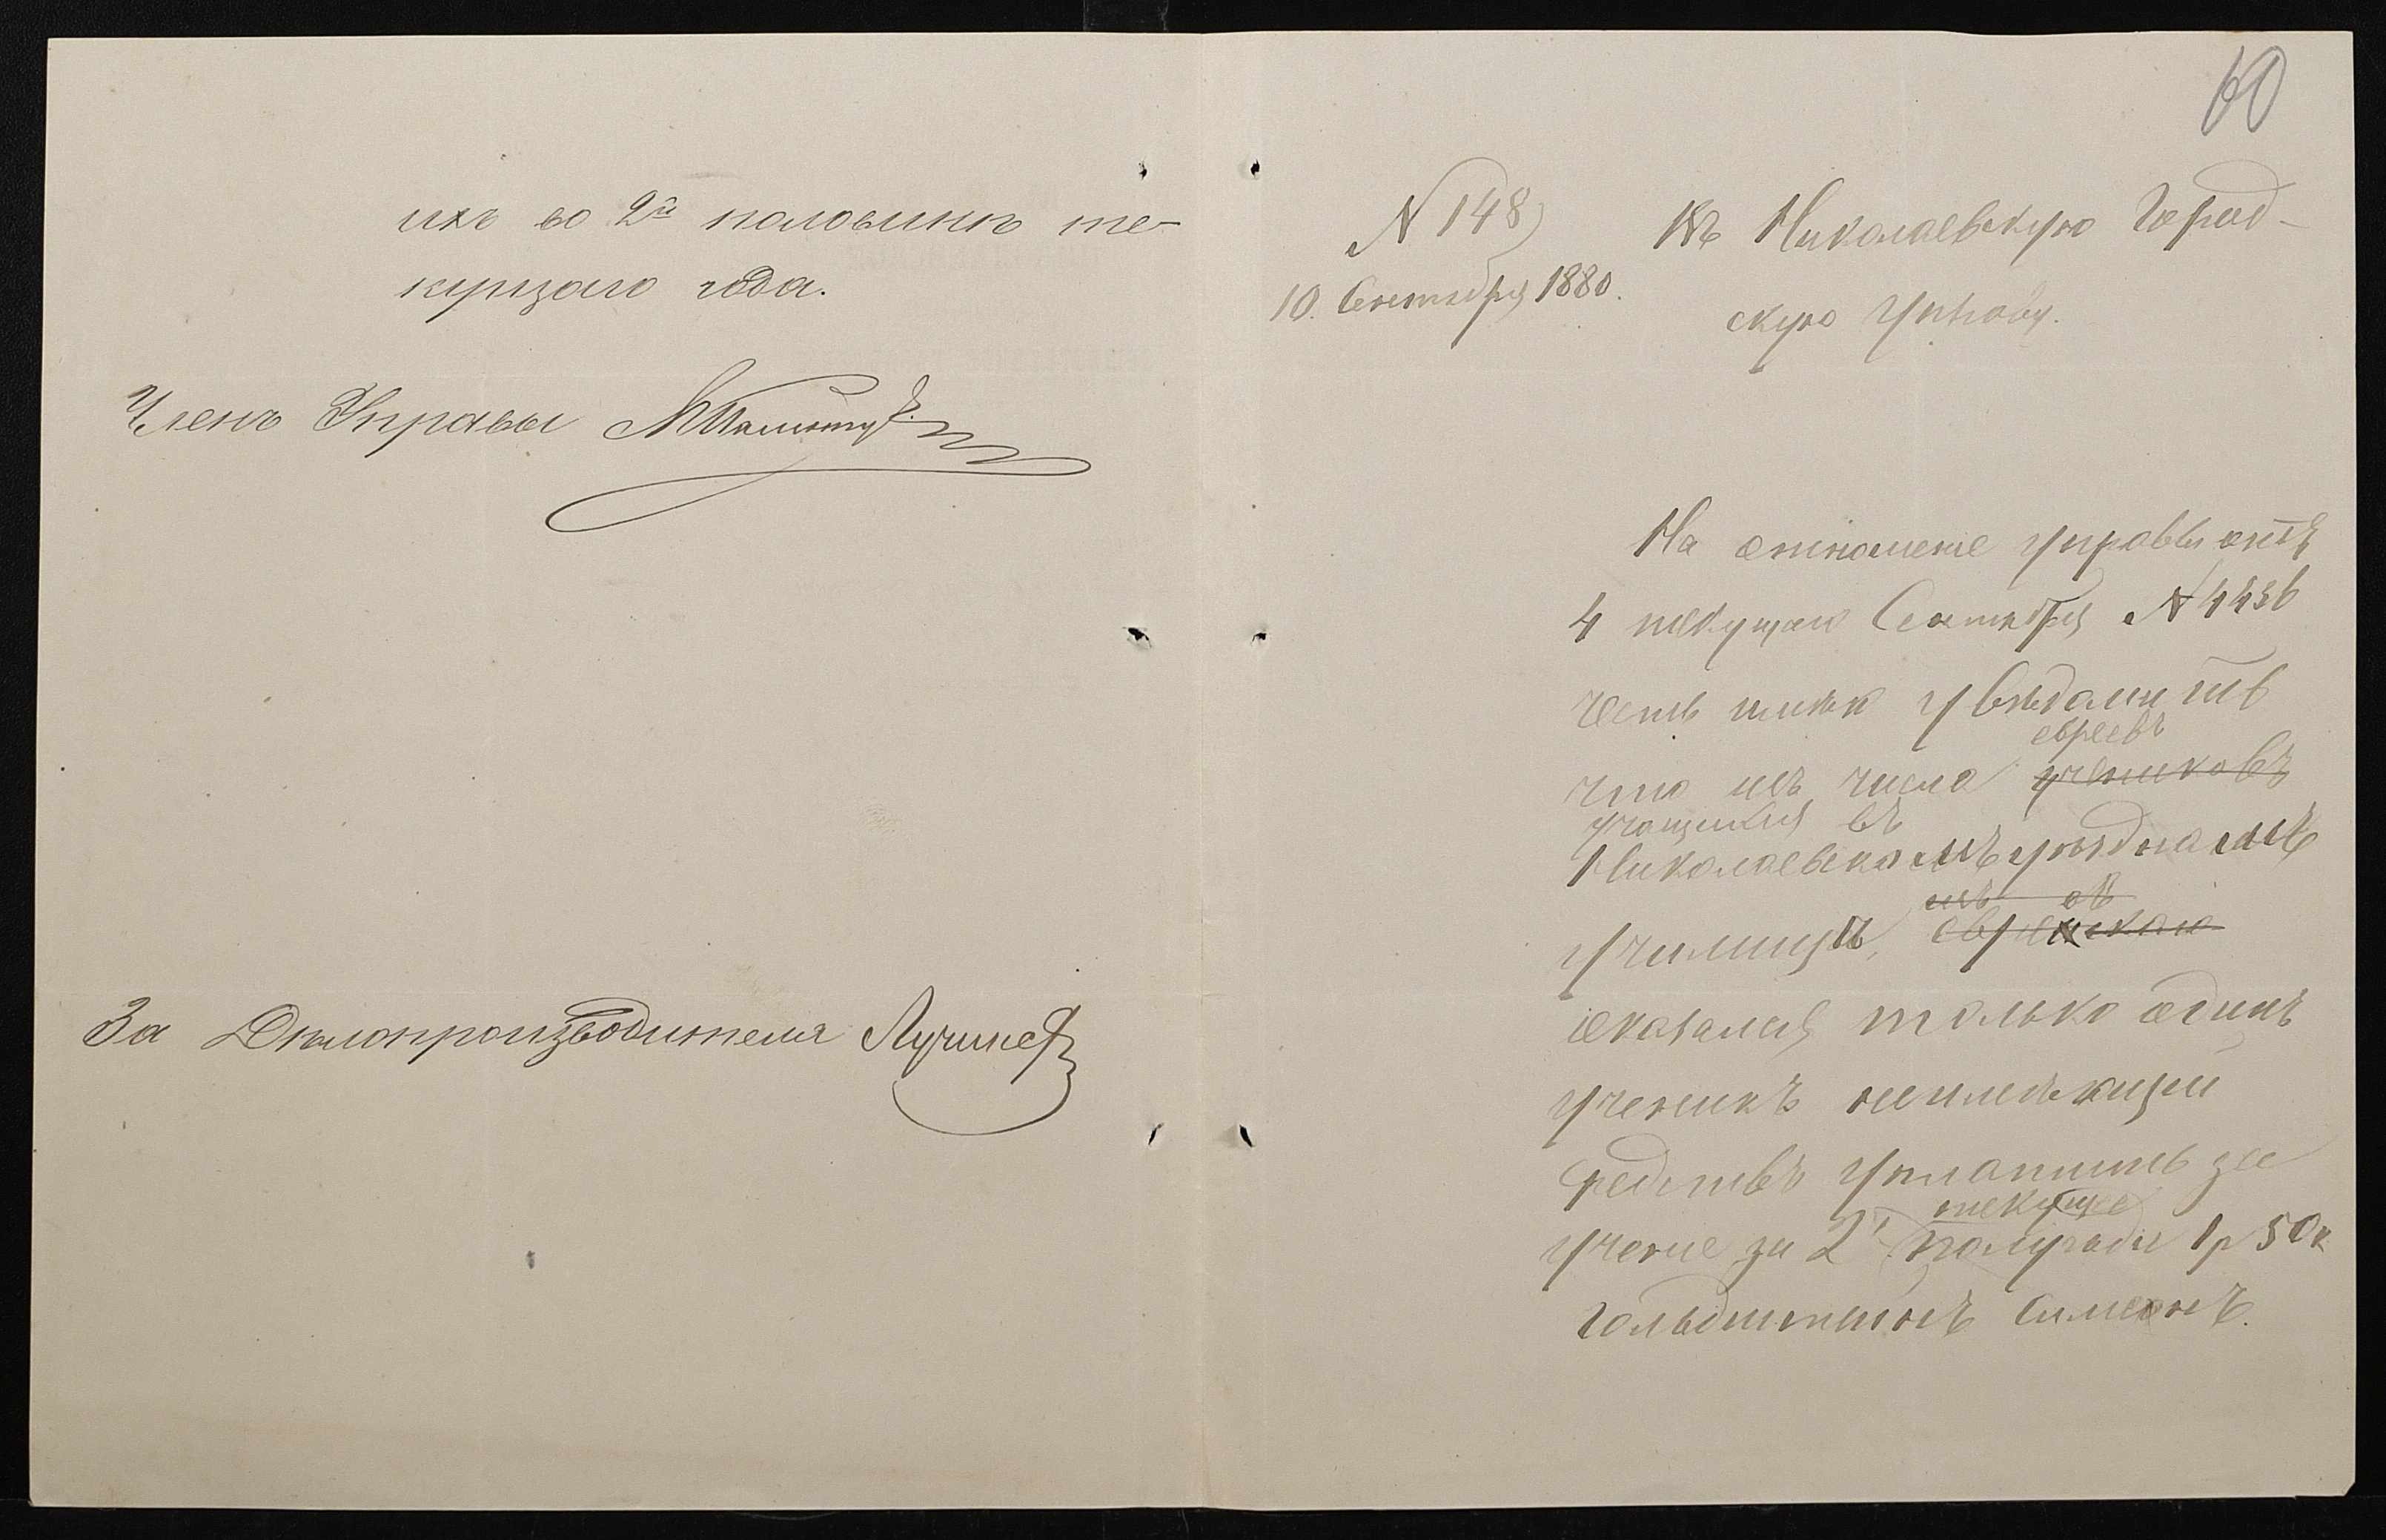 ихъ во 2й половинѣ те-
кущаго года.
Членъ Управы
За Дѣлопроизводителя
60
N 148
10. Сентября 1880.
Въ Николаевскую Город-
скую Управу.
На отношеніе управы отъ
4 текущаго Сентября N
честь имѣю увѣдомить
евреевъ
что изъ числа учениковъ
учащихся въ
Николаевскомъ уѣздномъ
училищѣ,
оказался только одинъ
ученикъ неимѣющій
средствъ уплатить за
текущее
ученіе за 2 полугодіе 1 р 50 к
Гольдштейнъ Симеонъ.